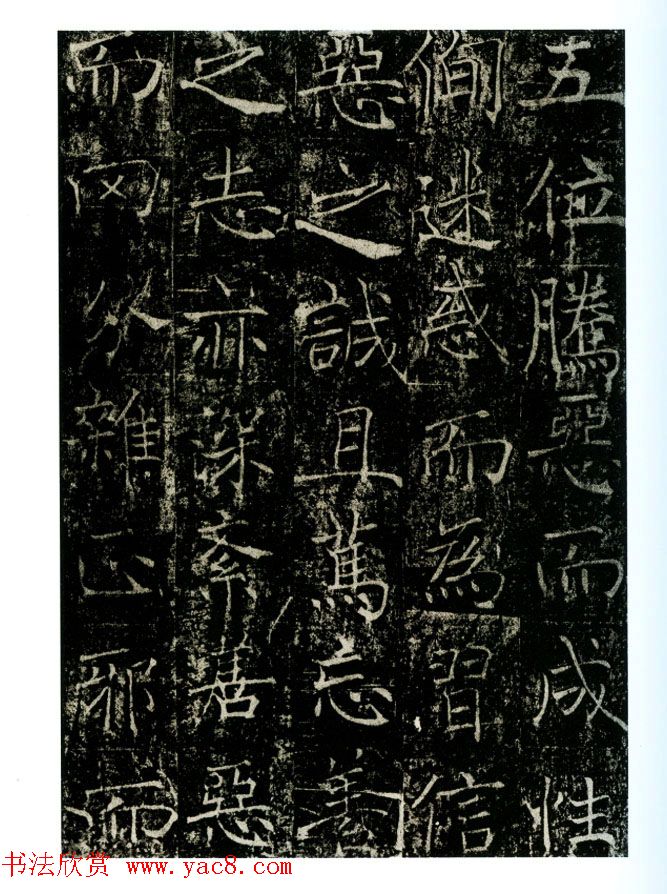 五騰惡而成性
侚迷惑而為習信
惡之誠且篤忘善
之志亦深紊善惡
而罔分雜正邪而
书法欣赏 www.yac8.com